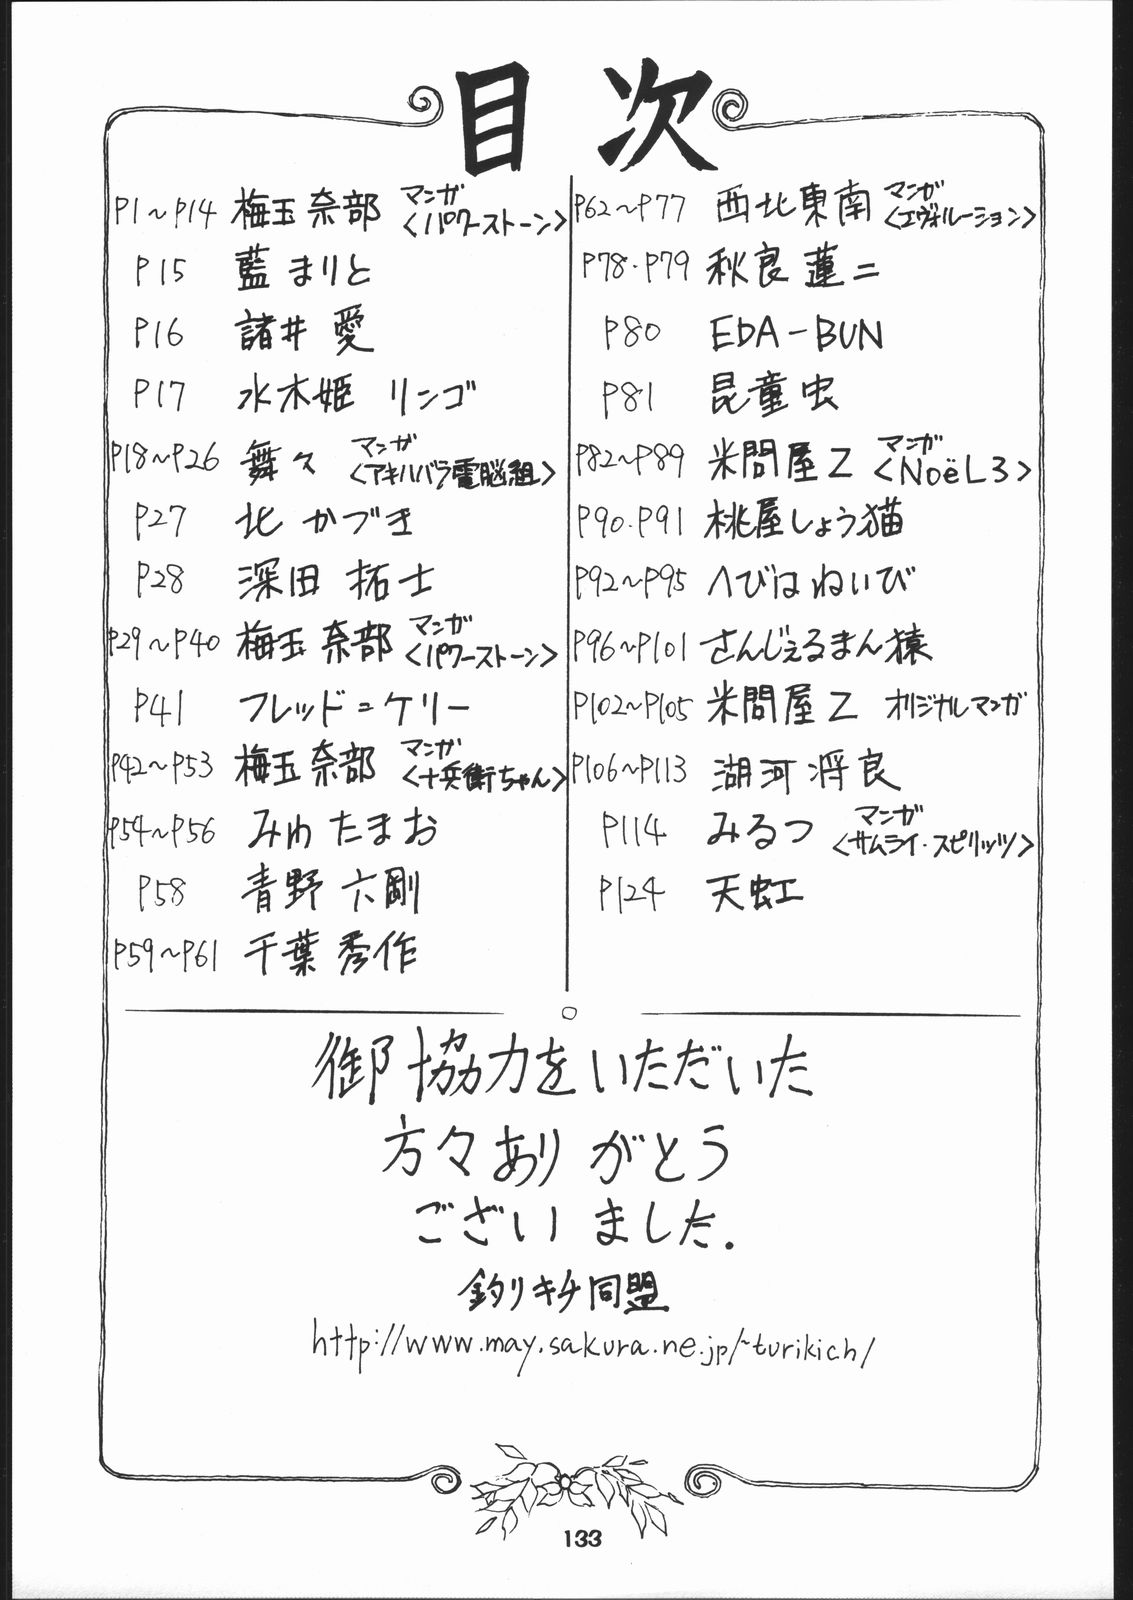 目次
P1～P14 梅玉奈部 マンガ<パワーストーン>
P15 藍まりと
P16 諸井 愛
P17 水木姫 リンゴ
P18～P26 舞々 マンガ<アキハバラ電脳組>
P27 北 かづき
P28 深田 拓士
P29～P40 梅玉奈部 マンガ<パワーストーン>
P41 フレッド=ケリー
P42～P53 梅玉奈部 マンガ<十兵衛ちゃん>
P54～P56 みゅたまお
P58 青野 六剛
P59～P61 千葉 秀作
P62～P77 西北東南 マンガ<エヴォルーション>
P78.P79 秋良 蓮二
P80 EDA-BUN
P81 昆童虫
P82～P89 米問屋Z マンガ<NoëL3>
P90.P91 桃屋しょう猫
P92～P95 へびはねいび
P96～P101 さんじぇるまん猿
P102～P105 米問屋Z オリジナルマンガ
P106～P113 湖河将良
P114 みるつ マンガ<サムライ・スピリッツ>
P124 天虹
御協力をいただいた
方々ありがとう
ございました.
釣りキチ同盟
http://www.may.sakura.ne.jp/~turikich/
133